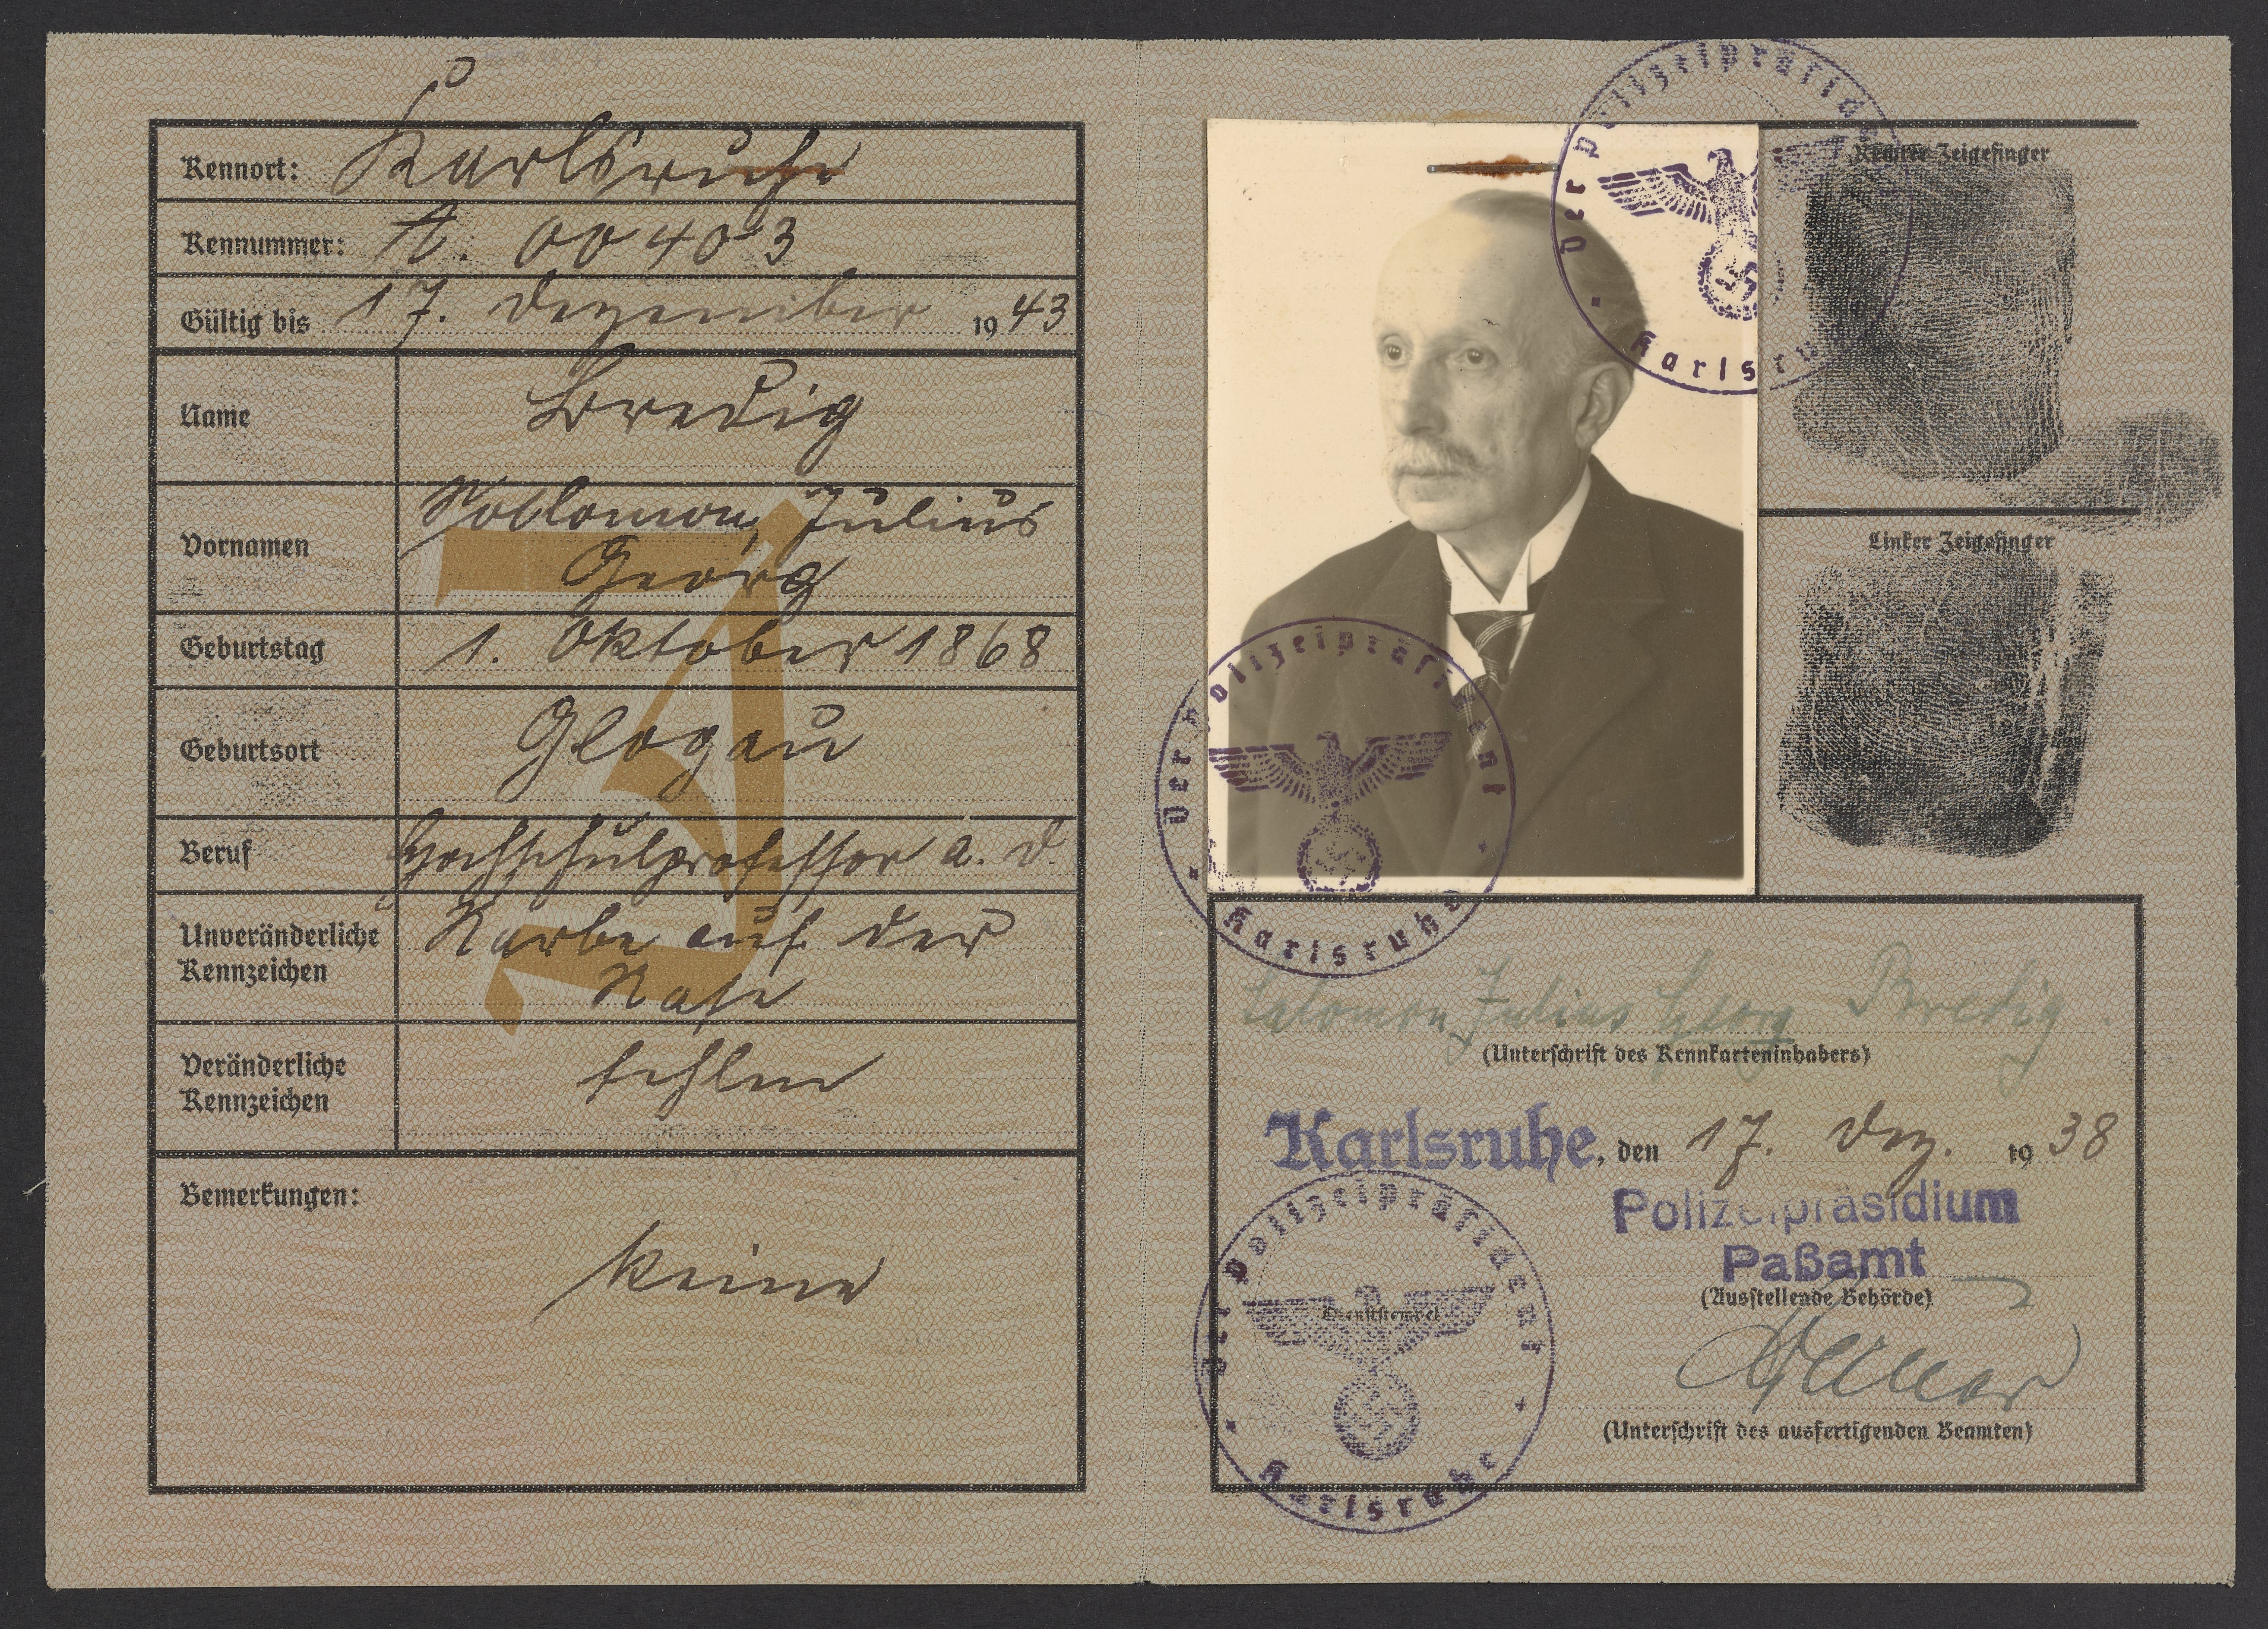 Kennort: Karlsruhe
Kennummer: A. 00403
Gültig bis 17. Dezember 1943
Name Bredig
Vornamen Julius
Georg
Geburtstag 1. Oktober 1868
Geburtsort Glogau
Beruf Hochschulprofessor a. D.
Unveränderliche Kennzeichen Narbe auf der
Nase
Veränderliche Kennzeichen fehlen
Bemerkungen:
keine
J
Der Polizeipräsident
Karlsruhe
Rechter Zeigefinger
Linker Zeigefinger
Der Polizeipräsident
Karlsruhe
Salomon Julius Georg Bredig
(Unterschrift des Kennkarteninhabers)
Karlsruhe, den 17. Dez. 1938
Polizeipräsidium
Paßamt
(Ausstellende Behörde)
Dienststempel
Der Polizeipräsident
Karlsruhe
(Unterschrift des ausfertigenden Beamten)